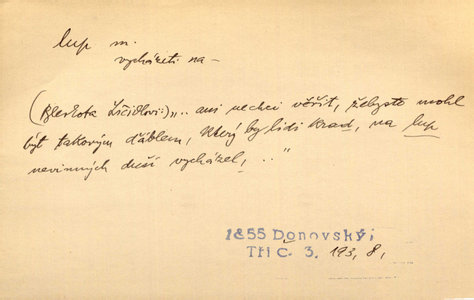 lup m.
vycházeti na –
(Bleskota Žičidlovi:) „.. ani nechci věřit, žebyste mohl
být takovým ďáblem, který by lidi kradl, na lup
nevinných duší vycházel, .. "
1855 Donovský,
Tři c. 3. 193, 8,